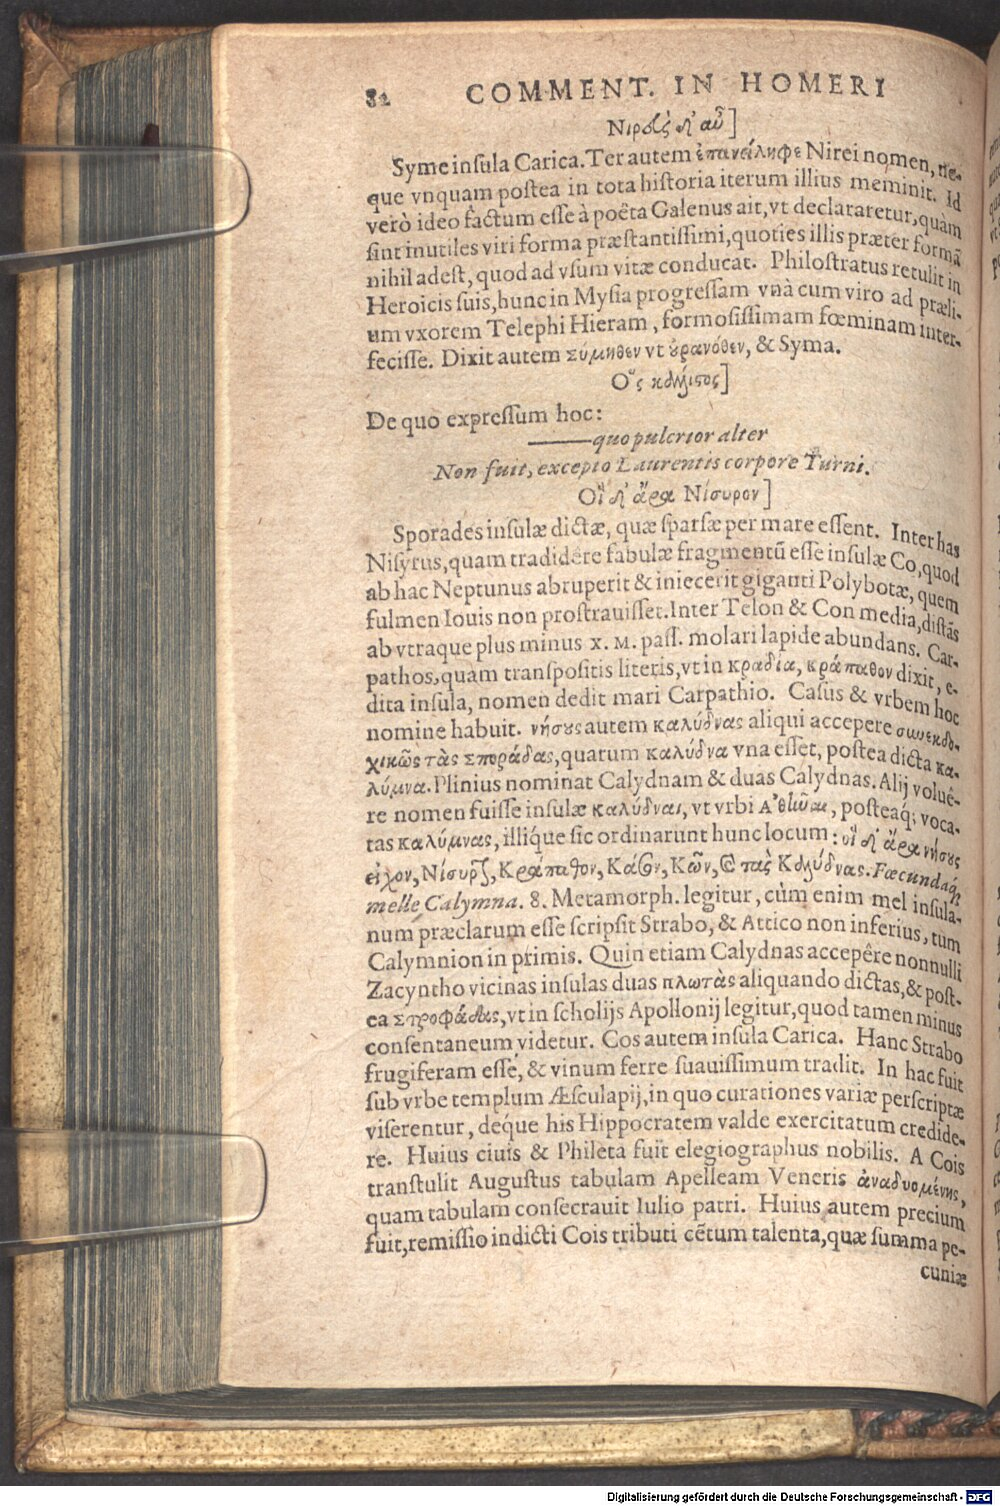 82 COMMENT. IN HOMERI
Νιρεὺς δ' αὖ]
Syme insula Carica. Ter autem ἐπανείληφε Nirei nomen, ne-
que vnquam postea in tota historia iterum illius meminit. Id
verò ideo factum esse à poëta Galenus ait, vt declararetur, quàm
sint inutiles viri forma præstantissimi, quoties illis præter formā
nihil adest, quod ad vsum vitæ conducat. Philostratus retulit in
Heroicis suis, hunc in Mysia progressam vnà cum viro ad præli-
um vxorem Telephi Hieram, formosissimam fœminam inter-
fecisse. Dixit autem σύμηθεν vt ȣ̓ρανόθεν, & Syma.
Ὃς κάλλιστος]
De quo expressum hoc:
——quo pulcrior alter
Non fuit, excepto Laurentis corpore Turni.
Οἳ δ' ἄρα Νίσυρον]
Sporades insulæ dictæ, quæ sparsæ per mare essent. Inter has
Nisyrus, quam tradidêre fabulæ fragmentū esse insulæ Co, quod
ab hac Neptunus abruperit & iniecerit giganti Polybotæ, quem
fulmen Iouis non prostrauisset. Inter Telon & Con media, distās
ab vtraque plus minus X. M. pass. molari lapide abundans. Car-
pathos, quam transpositis literis, vt in κραδία, κράπαθον dixit, e-
dita insula, nomen dedit mari Carpathio. Casus & vrbem hoc
nomine habuit. νήσȣς autem καλύδνας aliqui accepere συνεκδο-
χικῶς τὰς σποράδας, quarum καλύδνα vna esset, postea dicta κα-
λύμνα. Plinius nominat Calydnam & duas Calydnas. Alij voluê-
re nomen fuisse insulæ καλύδναι, vt vrbi Ἀθῆναι, posteaq́; voca-
tas καλύμνας, illiq́ue sic ordinarunt hunc locum: οἳ δ' ἄρα νήσȣς
εἶχον, Νίσυρον, Κράπαθον, Κάσον, Κῶν, καὶ τὰς Καλύδνας. Fœcundaq́;
melle Calymna. 8. Metamorph. legitur, cùm enim mel insula-
num præclarum esse scripsit Strabo, & Attico non inferius, tùm
Calymnion in primis. Quin etiam Calydnas accepêre nonnulli
Zacyntho vicinas insulas duas πλωτὰς aliquando dictas, & post-
ea στροφάδας, vt in scholijs Apollonij legitur, quod tamen minus
consentaneum videtur. Cos autem insula Carica. Hanc Strabo
frugiferam esse, & vinum ferre suauissimum tradit. In hac fuit
sub vrbe templum Æsculapij, in quo curationes variæ perscriptæ
viserentur, déque his Hippocratem valde exercitatum credide-
re. Huius ciuis & Phileta fuit elegiographus nobilis. A Cois
transtulit Augustus tabulam Apelleam Veneris ἀναδυομένης,
quam tabulam consecrauit Iulio patri. Huius autem precium
fuit, remissio indicti Cois tributi cētum talenta, quæ summa pe-
cuniæ
Digitalisierung gefördert durch die Deutsche Forschungsgemeinschaft - DFG